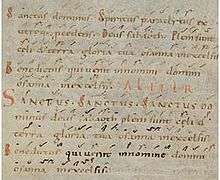 Sanctus dominus. Spiritus paraclytus ex
procedens. Deus sabaoth. Pleni sunt
celi & terra gloria tua osanna in excelsis.
Benedictus qui uenit in nomini domini
osanna in excelsis. ALITER
SANCTUS. SANCTUS. SANCTUS DO
minus deus sabaoth pleni sunt celi &
terra gloria tua osanna in excelsis
Benedictus qui uenit in nomine domini
osanna in excelsis.